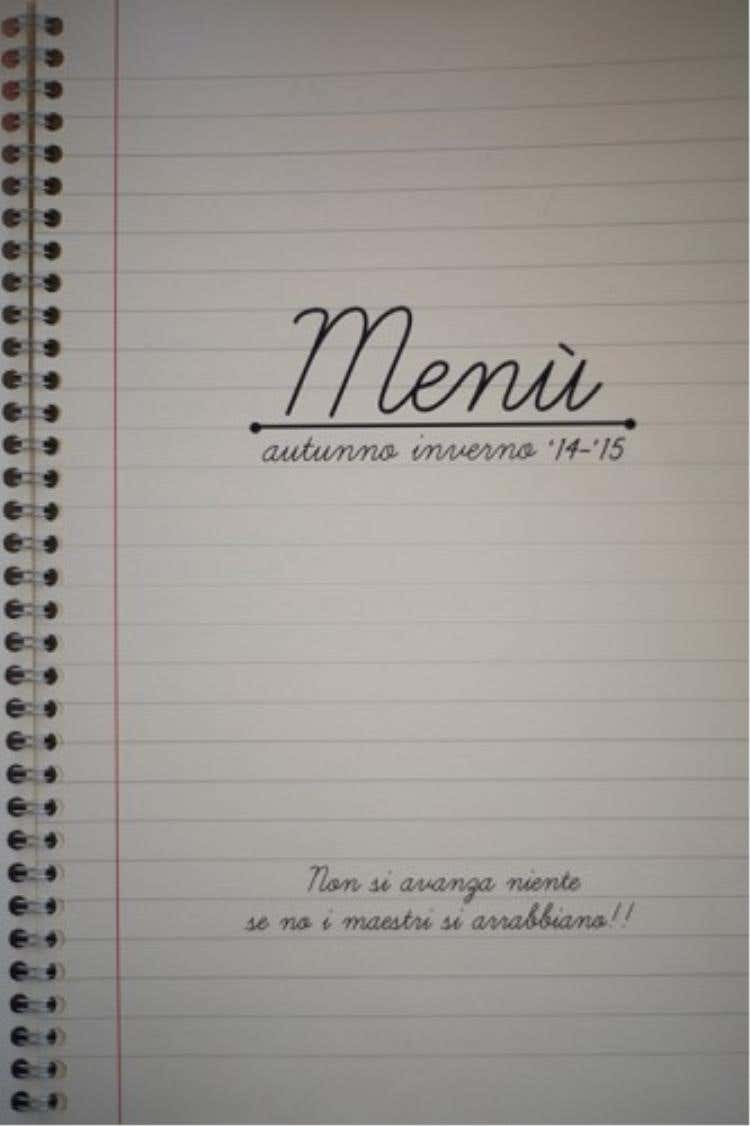 Menù
autunno inverno '14-'15
Non si avanza niente
se no i maestri si arrabbiano!!